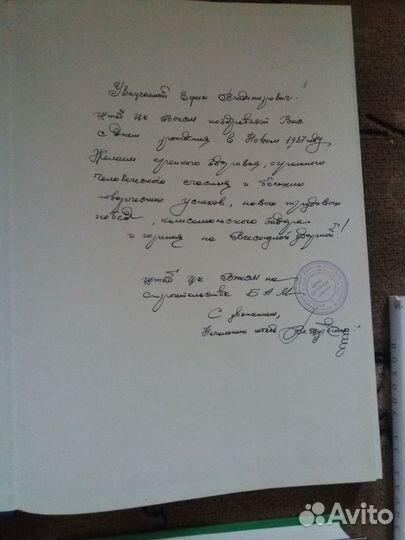 Уважаемый Ефим Владимирович!
Штаб ЦК ВЛКСМ поздравляет Вас
с Днем рождения в Новом 1987 году,
Желаем крепкого здоровья, огромного
человеческого счастья и больших
творческих успехов, нового трудового
побед, комсомольского задора
и горения на Всесоюзной ударной!
Штаб ЦК ВЛКСМ на
строительстве БАМ
С уважением,
Начальник штаба
Avito